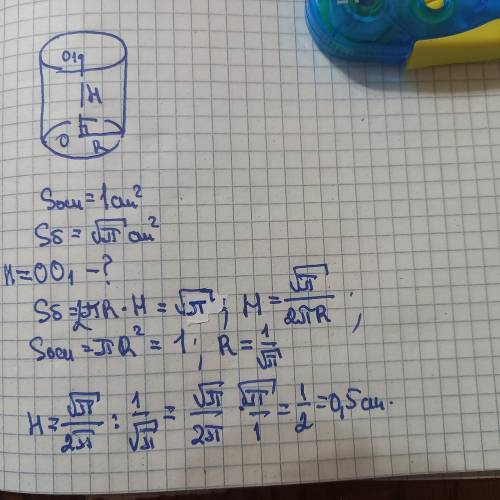 O₁
H
O
R
Sосн = 1 см²
Sб = √π см²
H = OO₁ – ?
Sб = 2πR · H = √π ; H = √π / 2πR ;
Sосн = πR² = 1 ; R = 1/√π
H = √π/2π : 1/√π = √π/2π · √π/1 = 1/2 = 0,5 см.